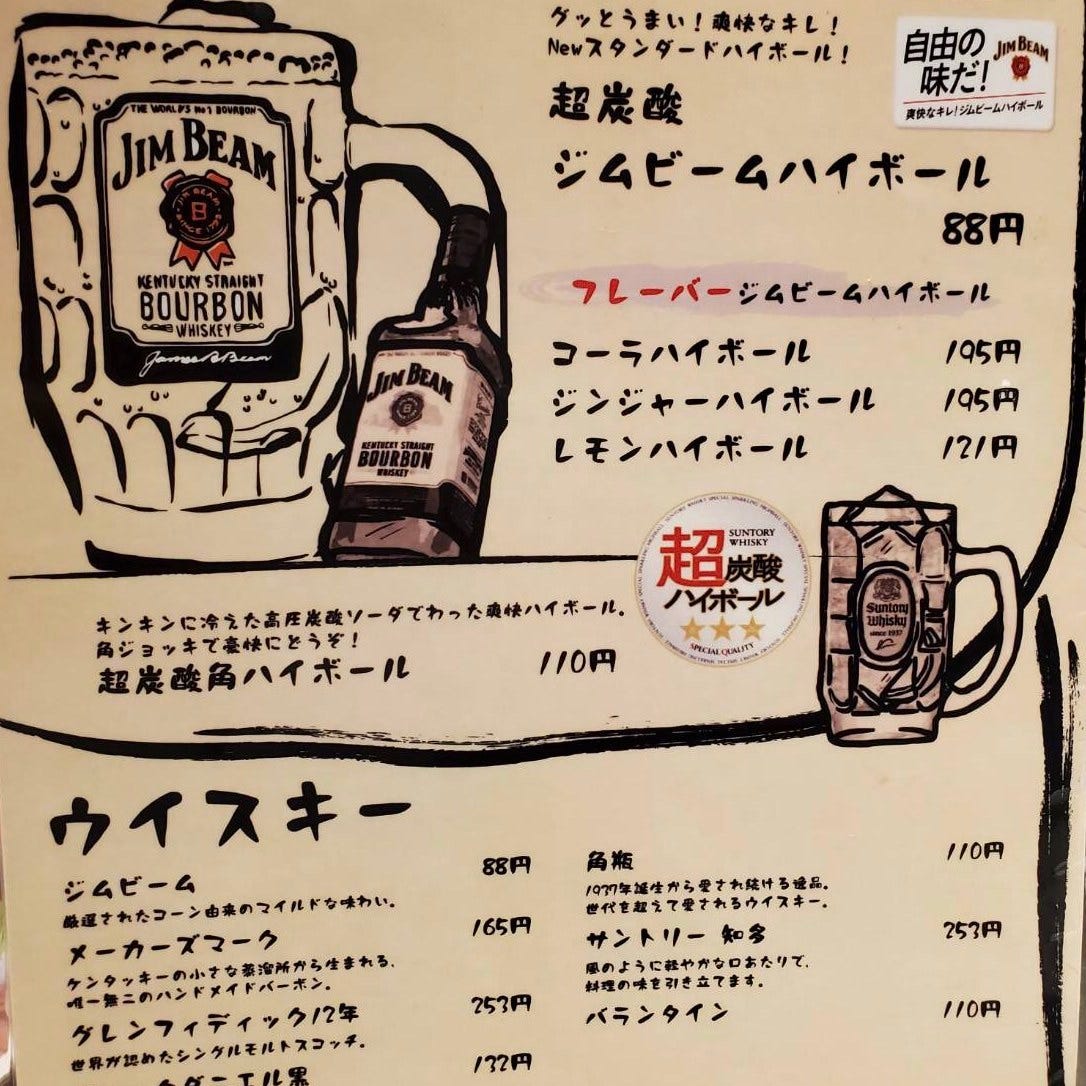 THE WORLD'S No1 BOURBON
JIM BEAM
JIM BEAM
B
SINCE 1795
KENTUCKY STRAIGHT
BOURBON
WHISKEY
James B. Beam
JIM BEAM
B
KENTUCKY STRAIGHT
BOURBON
WHISKEY
グッとうまい!爽快なキレ!
Newスタンダードハイボール!
超炭酸
ジムビームハイボール
88円
自由の
味だ!
JIM BEAM
爽快なキレ!ジムビームハイボール
フレーバージムビームハイボール
コーラハイボール 195円
ジンジャーハイボール 195円
レモンハイボール 121円
SUNTORY
WHISKY
超炭酸
ハイボール
SPECIAL QUALITY
Suntory
Whisky
since 1937
キンキンに冷えた高圧炭酸ソーダでわった爽快ハイボール。
角ジョッキで豪快にどうぞ!
超炭酸角ハイボール 110円
ウイスキー
ジムビーム 88円
厳選されたコーン由来のマイルドな味わい。
メーカーズマーク 165円
ケンタッキーの小さな蒸溜所から生まれる、
唯一無二のハンドメイドバーボン。
グレンフィディック12年 253円
世界が認めたシングルモルトスコッチ。
ダニエル黒 132円
角瓶 110円
1937年誕生から愛され続ける逸品。
世代を超えて愛されるウイスキー。
サントリー 知多 253円
風のように軽やかな口あたりで、
料理の味を引き立てます。
バランタイン 110円